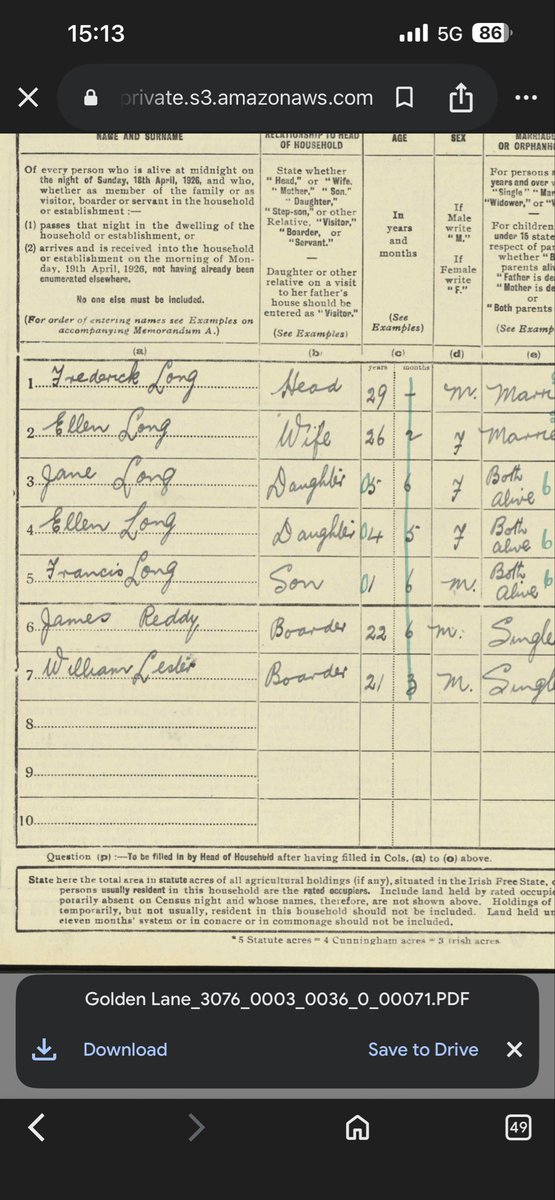 15:13
5G 86
private.s3.amazonaws.com
NAME AND SURNAME
RELATIONSHIP TO HEAD
OF HOUSEHOLD
AGE
SEX
MARRIAGE
OR ORPHANH
Of every person who is alive at midnight on
the night of Sunday, 18th April, 1926, and who,
whether as member of the family or as
visitor, boarder or servant in the household
or establishment :—
(1) passes that night in the dwelling of the
household or establishment, or
(2) arrives and is received into the household
or establishment on the morning of Mon-
day, 19th April, 1926, not having already been
enumerated elsewhere.
No one else must be included.
(For order of entering names see Examples on
accompanying Memorandum A.)
State whether
"Head," or "Wife,
"Mother," "Son,"
"Daughter,"
"Step-son," or other
Relative, "Visitor,"
"Boarder, or
"Servant."
—
Daughter or other
relative on a visit
to her father's
house should be
entered as "Visitor."
(See Examples)
In
years
and
months
(See
Examples)
If
Male
write
"M."
If
Female
write
"F."
For persons
years and over
"Single" "Mar
"Widower," or "
For children
under 15 state
respect of par
whether "B
parents aliv
"Father is de
"Mother is de
or
"Both parents
(See Examp
(a) (b) (c) (d) (e)
years months
1. Frederick Long Head 29 1 M. Marri
2. Ellen Long Wife 26 2 F Marrie
3. Jane Long Daughter 05 6 F Both alive 6
4. Ellen Long Daughter 04 5 F Both alive 6
5. Francis Long Son 01 6 M. Both alive 6
6. James Reddy Boarder 22 6 M. Single
7. William Lester Boarder 21 3 M. Singl
8.
9.
10.
Question (p) :—To be filled in by Head of Household after having filled in Cols. (a) to (o) above.
State here the total area in statute acres of all agricultural holdings (if any), situated in the Irish Free State,
persons usually resident in this household are the rated occupiers. Include land held by rated occupie
porarily absent on Census night and whose names, therefore, are not shown above. Holdings of
temporarily, but not usually, resident in this household should not be included. Land held un
eleven months' system or in conacre or in commonage should not be included.
*5 Statute acres = 4 Cunningham acres = 3 Irish acres.
Golden Lane_3076_0003_0036_0_00071.PDF
Download Save to Drive
49